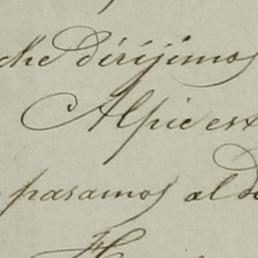 che dirijimos
Alpie est
pasamos al D